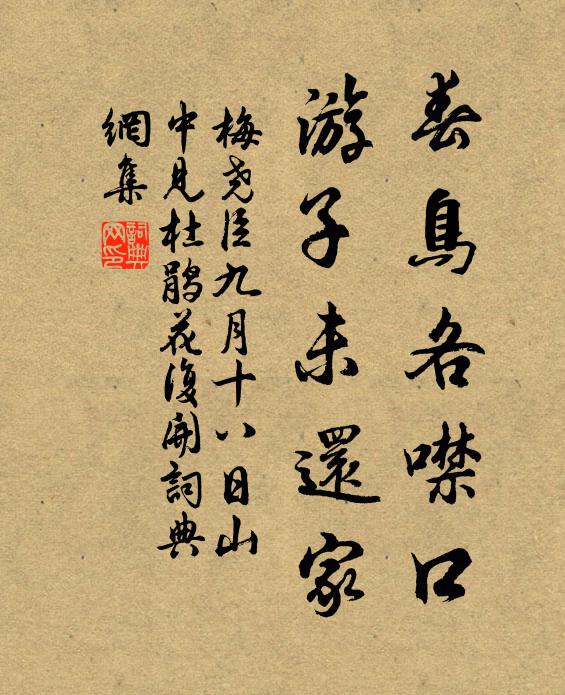 春鳥各噤口
游子未還家
梅堯臣九月十八日山
中見杜鵑花復開詞典
網集
詞典
网印